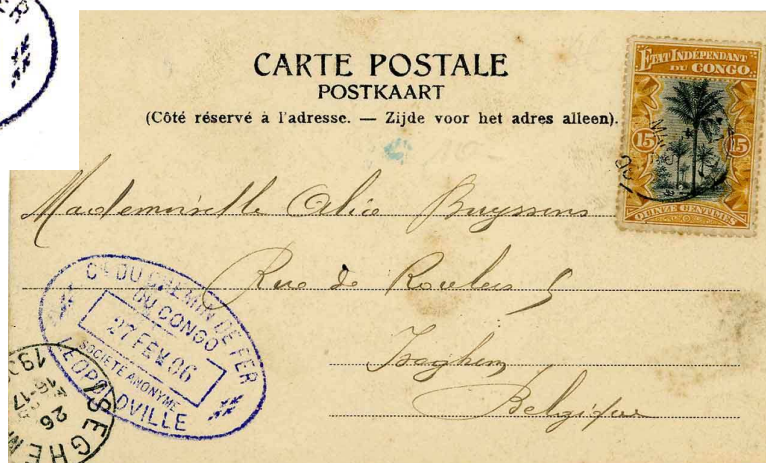 ER
CARTE POSTALE
POSTKAART
(Côté réservé à l'adresse. — Zijde voor het adres alleen).
ETAT INDÉPENDANT
DU CONGO
15 15
QUINZE CENTIMES
Mademoiselle Alice Buyssens
Rue de Roulers 5
Iseghem
Belgique
Cie DU CHEMIN DE FER
DU CONGO
27 FEV. 06
SOCIÉTÉ ANONYME
LEOPOLDVILLE
ISEGHEM
26